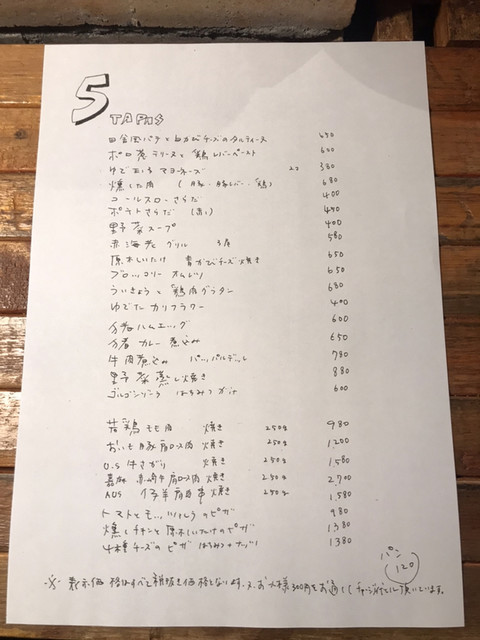 5
TAPAS
田舎風パテと白カビチーズのタルティーヌ 650
ポロ葱テリーヌと鶏レバーペースト 600
ゆで玉子マヨネーズ 2コ 380
燻した肉 (豚、豚レバー、鶏) 680
コールスローさらだ 400
ポテトさらだ 450
野菜スープ 400
赤海老グリル 3尾 580
原木しいたけ 青カビチーズ焼き 650
ブロッコリー オムレツ 650
ういきょうと鶏肉グラタン 680
ゆでたカリフラワー 400
ハムエッグ 600
カレー煮込み 650
牛肉煮込み パッパルデッレ 780
野菜蒸し焼き 880
ゴルゴンゾーラ はちみつがけ 600
若鶏もも肉 焼き 250g 980
おいも豚肩ロース肉 焼き 250g 1,200
U.S 牛さがり 焼き 250g 1,580
肩ロース肉 焼き 250g 2,700
AUS 仔羊肩肉 焼き 250g 1,580
トマトとモッツァレラのピザ 980
燻しチキンと原木しいたけのピザ 1380
4種チーズのピザ はちみつ+ナッツ 1380
パン 120
※ 表示価格はすべて税抜き価格となります。又、お一人様300円をお通し、チャージとして頂いています。